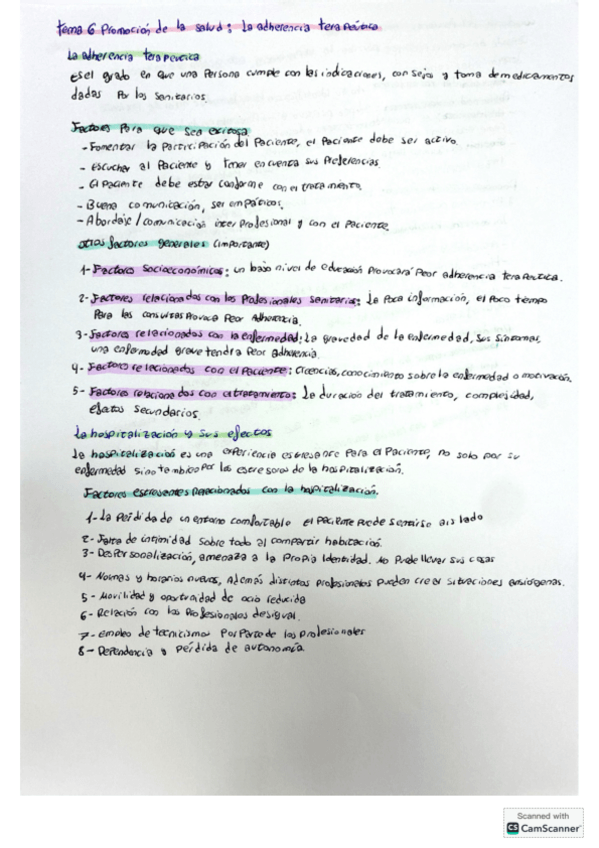 Tema 6 Promoción de la salud: La adherencia terapéutica
La adherencia terapeutica
Es el grado en que una persona cumple con las indicaciones, consejos y toma de medicamentos
dadas por los sanitarios.
Factores para que sea exitosa
- Fomentar la participación del paciente, el paciente debe ser activo.
- Escuchar al paciente y tener en cuenta sus preferencias.
- El paciente debe estar conforme con el tratamiento.
- Buena comunicación, ser empáticos.
- Abordaje/comunicación interprofesional y con el paciente.
Otros factores generales (importante)
1- Factores socioeconómicos: un bajo nivel de educación provocará peor adherencia terapeutica.
2- Factores relacionados con los profesionales sanitarios: La poca información, el poco tiempo
para las consultas provoca peor adherencia.
3- Factores relacionados con la enfermedad: La gravedad de la enfermedad, sus síntomas,
una enfermedad grave tendrá peor adherencia.
4- Factores relacionados con el paciente: Creencias, conocimiento sobre la enfermedad o motivación.
5- Factores relacionados con el tratamiento: La duración del tratamiento, complejidad,
efectos secundarios.
La hospitalización y sus efectos
La hospitalización es una experiencia estresante para el paciente, no solo por su
enfermedad sino tambien por los estresores de la hospitalización.
Factores estresantes relacionados con la hospitalización.
1- La pérdida de un entorno comfortable el paciente puede sentirse aislado
2- Falta de intimidad sobre todo al compartir habitación.
3- Despersonalización, amenaza a la propia identidad. No puede llevar sus cosas
4- Normas y horarios nuevos, además distintos profesionales pueden crear situaciones ansiógenas.
5- Movilidad y oportunidad de ocio reducida
6- Relación con los profesionales desigual.
7- empleo de tecnicismos por parte de los profesionales
8- Dependencia y pérdida de autonomía.
Scanned with
CS CamScanner